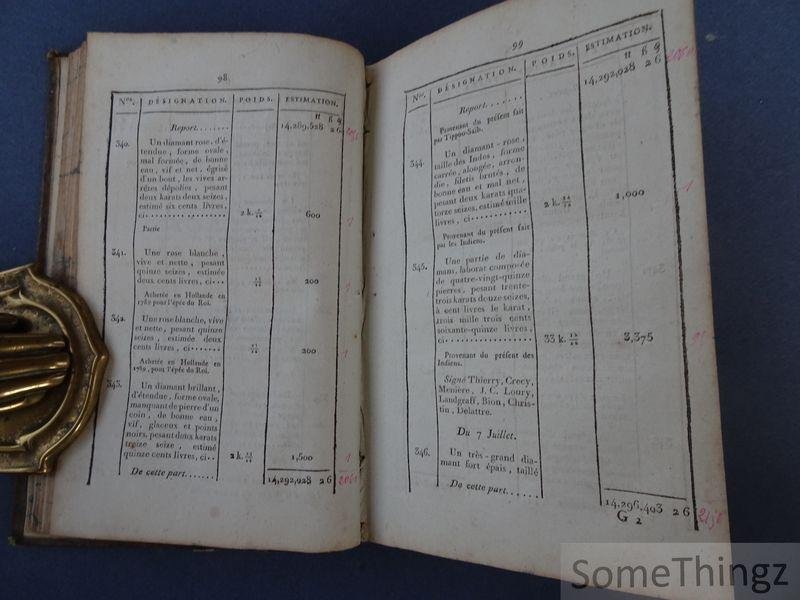 98
Nos. DÉSIGNATION. POIDS. ESTIMATION.
Report........ 14,289,528 2 6
340. Un diamant rose, d'é-
tendue, forme ovale,
mal formée, de bonne
eau, vif et net, égrisé
d'un bout, les vives ar-
rêtes dépolies, pesant
deux karats deux seizes,
estimé six cents livres,
ci.............. 2 k. 2/16 600
Partie
341. Une rose blanche,
vive et nette, pesant
quinze seizes, estimée
deux cents livres, ci... 15/16 200
Achetée en Hollande en
pour l'épée du Roi.
342. Une rose blanche, vive
et nette, pesant quinze
seizes, estimée deux
cents livres, ci....... 15/16 200
Achetée en Hollande en
pour l'épée du Roi.
343. Un diamant brillant,
d'étendue, forme ovale,
manquant de pierre d'un
coin, de bonne eau,
vif, glaceux et points
noirs, pesant deux karats
treize seize, estimé
quinze cents livres, ci.. 2 k. 13/16 1,500
De cette part...... 14,292,028 2 6
99
Nos. DÉSIGNATION. POIDS. ESTIMATION.
Report........ 14,292,028 2 6
Provenant du présent fait
par Tippoo-Saïb.
344. Un diamant-rose,
taille des Indes, forme
carrée, alongée, arron-
die, filetis brutés, de
bonne eau et mal net,
pesant deux karats qua-
torze seizes, estimé mille
livres, ci............ 2 k. 14/16 1,000
Provenant du présent fait
par les Indiens.
345. Une partie de dia-
mans, laborat composée
de quatre-vingt-quinze
pierres, pesant trente-
trois karats douze seizes,
à cent livres le karat,
trois mille trois cents
soixante-quinze livres,
ci.............. 33 k. 12/16 3,375
Provenant du présent des
Indiens.
Signé Thierry, Crecy,
Menière, J. C. Loury,
Landgraff, Bion, Chris-
tin, Delattre.
Du 7 Juillet.
346. Un très-grand dia-
mant fort épais, taillé
De cette part...... 14,296,403 2 6
G 2
SomeThingz